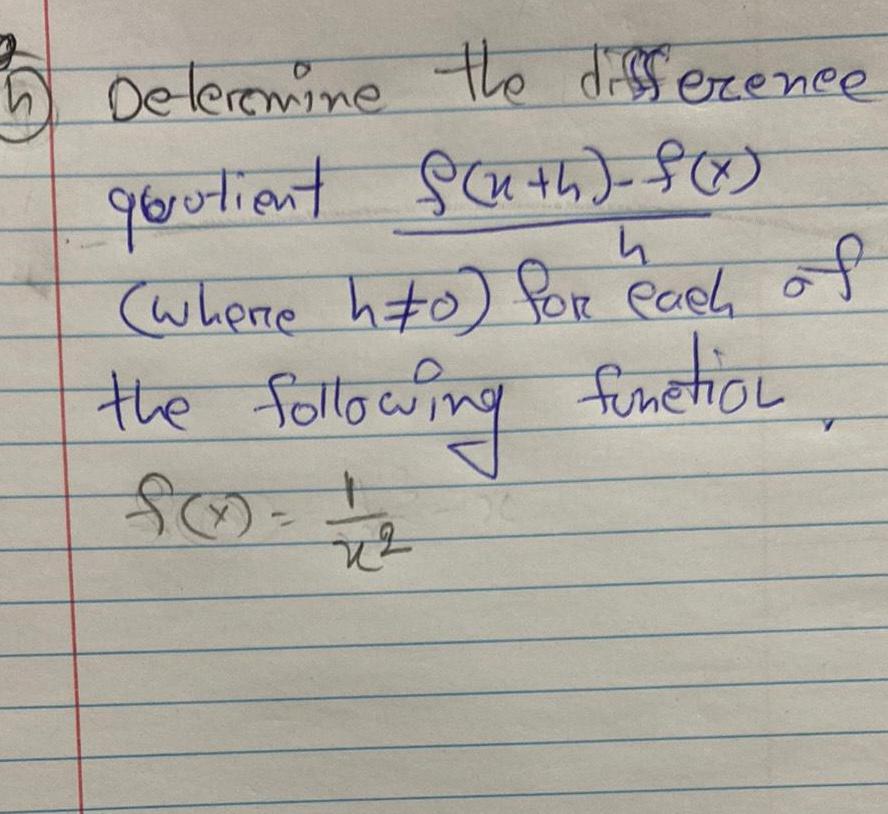 h) Determine the difference
quotient f(x+h)-f(x)
h
(where h≠0) for each of
the following function,
f(x) = 1/x²